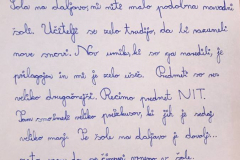 Šola na daljavo mi niti malo podobna navadni
šoli. Učitelji se zelo trudijo, da bi razumeli
nove snovi. Nov urnik, ki so ga naredili, je
prilagojen in mi je zelo všeč. Predmeti so
veliko drugačnejši. Recimo predmet NIT.
Tam smo imeli veliko preizkusov, ki jih je sedaj
veliko manj. Te šole na daljavo je dovolj